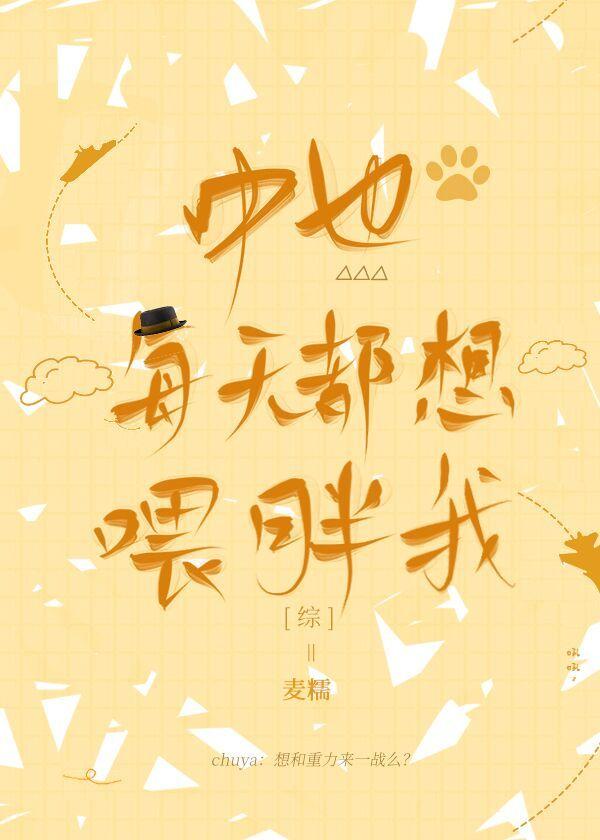 中也
每天都想
喂胖我
[综]
||
麦糯
吼
吼
chuya：想和重力来一战么？